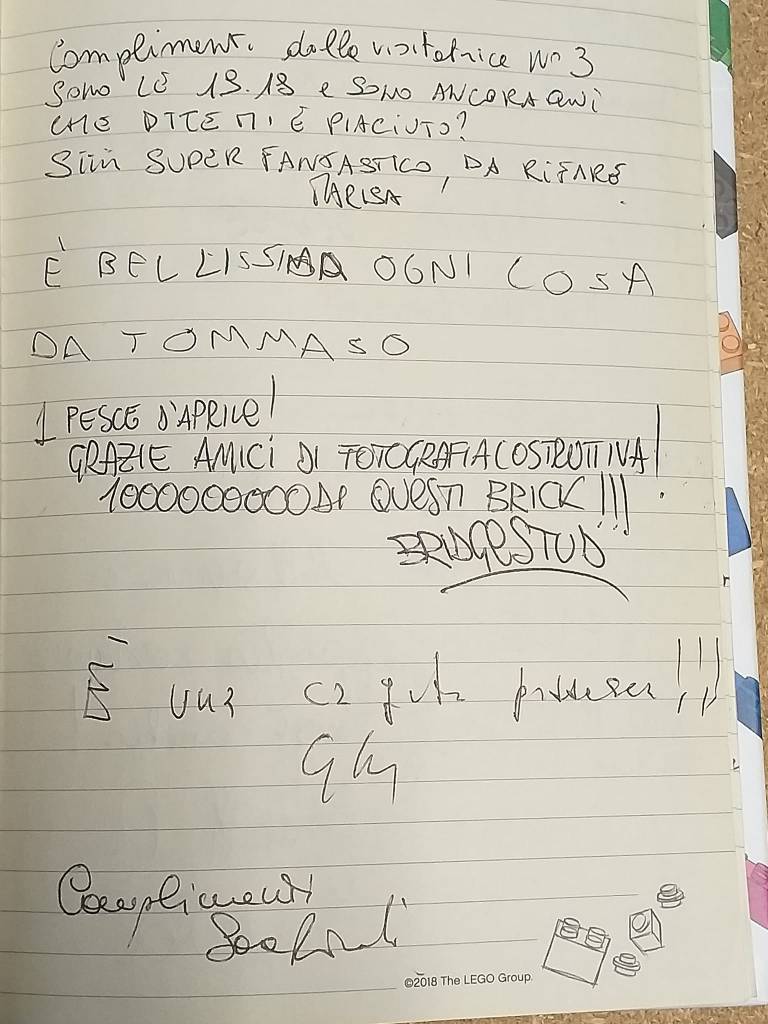 Complimenti dalla visitatrice n° 3
SONO LE 19.18 e SONO ANCORA QUI
CHE DITE MI È PIACIUTO?
Siiii SUPER FANTASTICO, DA RIFARE.
MARISA
È BELLISSIMA OGNI COSA
DA TOMMASO
1 PESCE D'APRILE!
GRAZIE AMICI DI FOTOGRAFIACOSTRUTTIVA!
1000000000 DI QUESTI BRICK!!!
BRIDGESTUD
È una !!!
Complimenti
©2018 The LEGO Group.